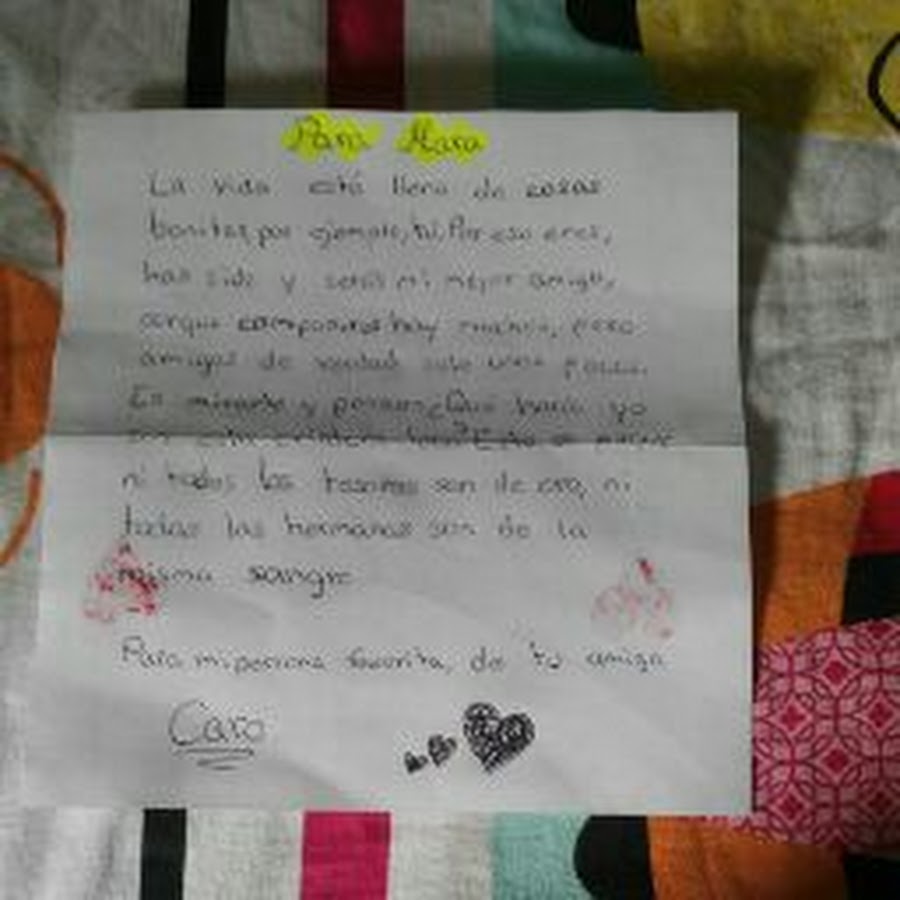 Para Mara
La vida está llena de cosas
bonitas, por ejemplo, tú. Por eso eres,
has sido y serás mi mejor amiga,
porque compañeros hay muchos, pero
amigos de verdad solo unos pocos.
Es mirarte y pensar ¿Qué haría yo
sin
ni todos los tesoros son de oro, ni
todas las hermanas son de la
misma sangre
Para mi persona favorita, de tu amiga
Caro